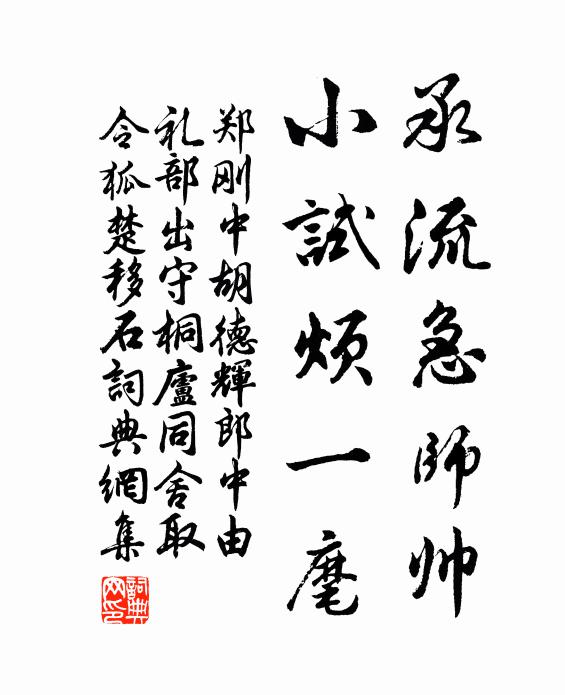 承流急师帅
小試烦一麾
郑刚中胡德輝郎中由
礼部出守桐廬同舍取
令狐楚移石詞典網集
詞典网印